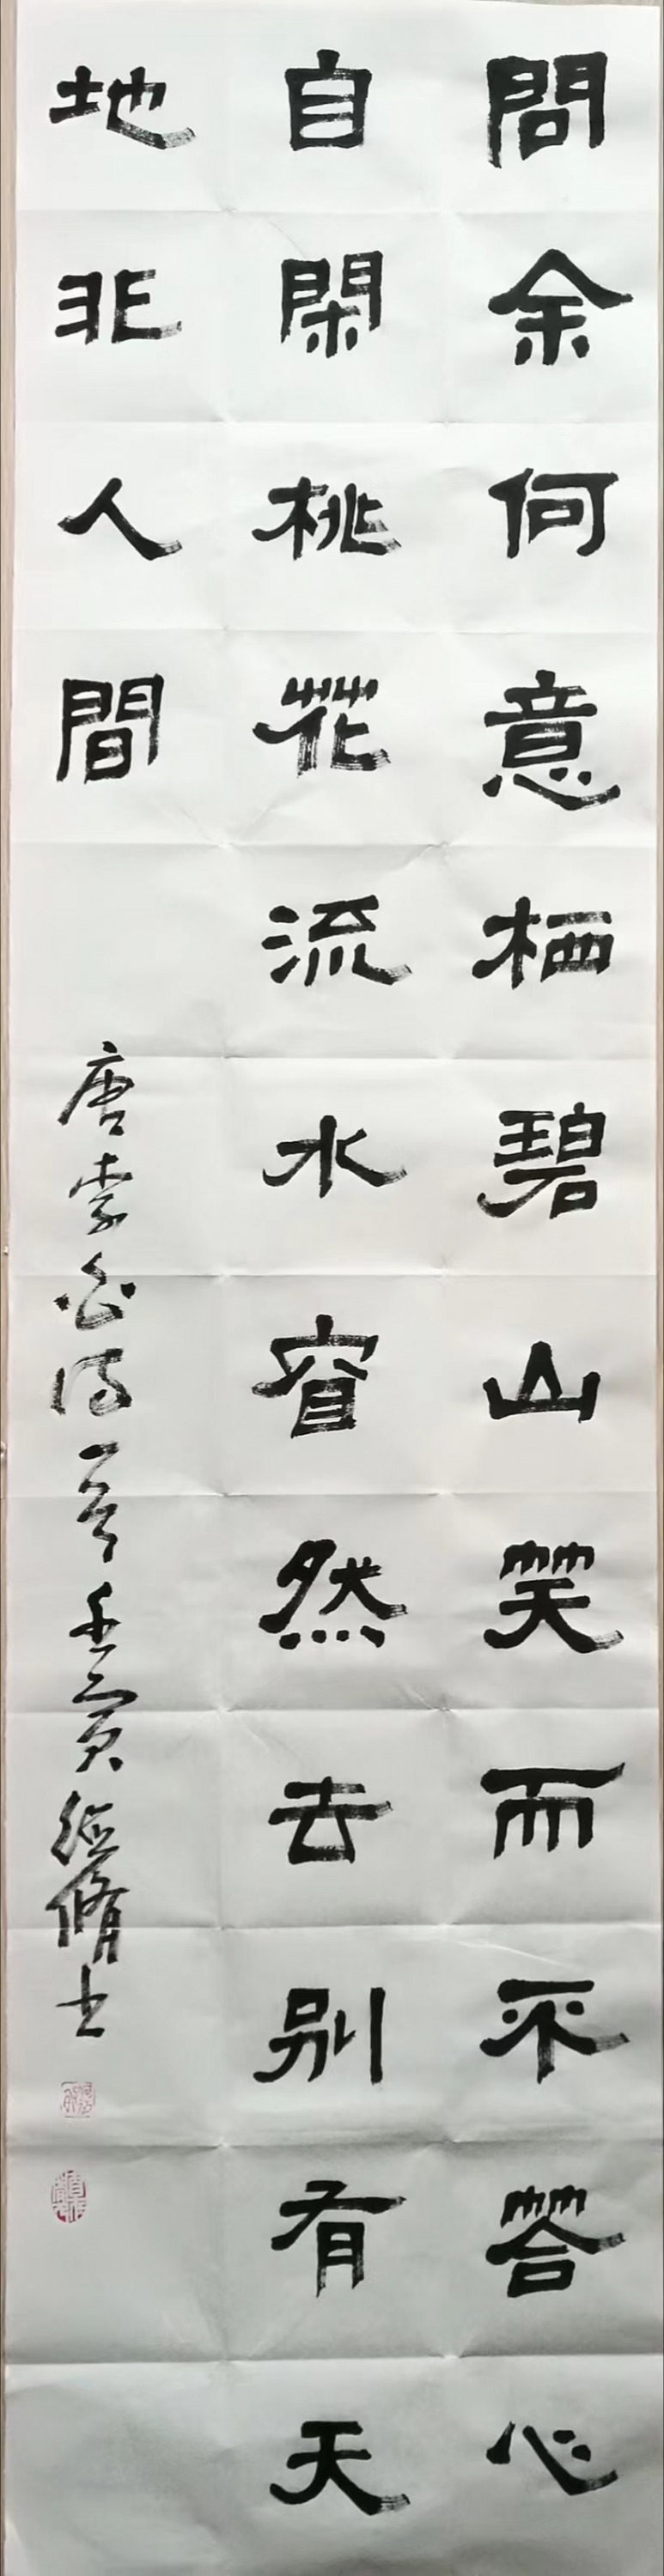 問余何意栖碧山笑而不答心
自閑桃花流水窅然去別有天
地非人間
唐李白詩一首壬寅德脩書